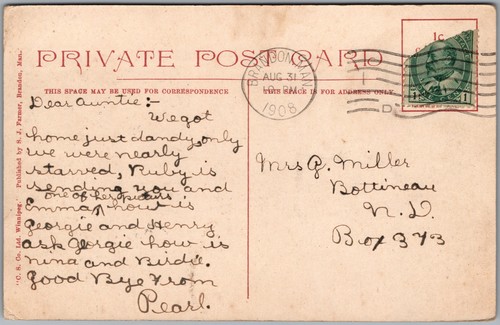 PRIVATE POST CARD
1c
BRANDON MAN.
AUG 31
1908
THIS SPACE MAY BE USED FOR CORRESPONDENCE
THIS SPACE IS FOR ADDRESS ONLY.
Dear Auntie:-
We got
home just dandy, only
we were nearly
starved, Ruby is
sending you and
one of her pictures
Emma, how is
Georgie and Henry
ask Georgie how is
nina and Birdie.
Good Bye From
Pearl.
Mrs G. Miller
Bottineau
N. D.
Box 373
"C. S. Co. Ltd. Winnipeg." Published by S. J. Farmer, Brandon, Man.